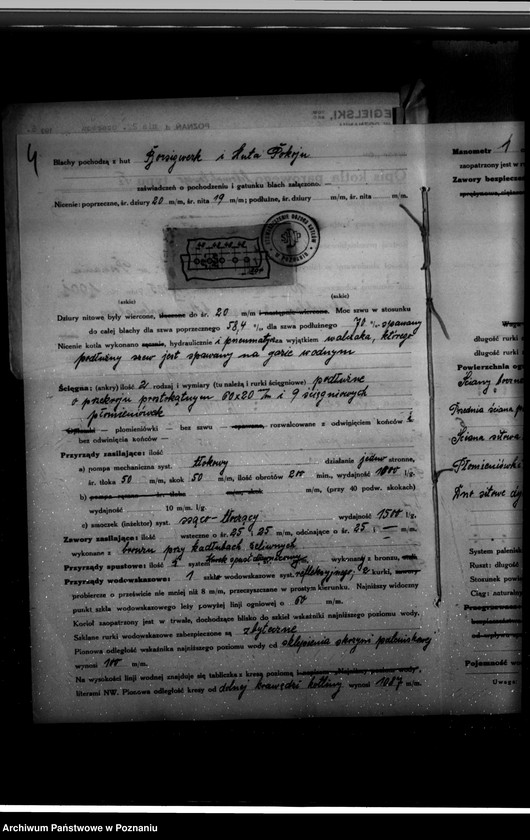 4
Blachy pochodzą z hut Borsigwerk i Huta Pokoju
zaświadczeń o pochodzeniu i gatunku blach załączono.
Nicenie: poprzeczne, śr. dziury 20 m/m, śr. nita 19 m/m; podłużne, śr. dziury m/m, śr. nita m/m.
(szkic) (szkic)
Dziury nitowe były wiercone, do śr. 20 m/m Moc szwu w stosunku
do całej blachy dla szwa poprzecznego 58,4 % dla szwa podłużnego 70 % spawany
Nicenie kotła wykonano ręcznie, hydraulicznie i pneumatycz wyjątkiem walczaka, którego
podłużny szew jest spawany na gazie wodnym
Ścięgna: (ankry) ilość 2 rodzaj i wymiary (tu należą i rurki ścięgniowe) podłużne
o przekroju prostokątnym 60x20 i 9 ścięgniowych
płomieniówek
płomieniówki — bez szwu — rozwalcowane z odwinięciem końców i
bez odwinięcia końców —
Przyrządy zasilające: ilość
a) pompa mechaniczna syst. tłokowy działanie jedno stronne,
śr. tłoka 50 m/m, skok 50 m/m, ilość obrotów 200 min., wydajność 1000 l/g.
b) pompa m/m, (przy 40 podw. skokach)
wydajność 10 m/m. l/g.
c) smoczek (inżektor) syst. ssąco tłoczący wydajność 1500 l/g.
Zawory zasilające: ilość wsteczne o śr. 25 i 25 m/m, odcinające o śr. 25 i — m/m.
wykonane z bronzu przy kadłubach żeliwnych
Przyrządy spustowe: ilość 2 system wykonany z bronzu,
Przyrządy wodowskazowe: 1 szkło wodowskazowe syst. refleksyjnego, 2 kurki,
probiercze o prześwicie nie mniej niż 8 m/m, przeczyszczane w prostym kierunku. Najniższy widoczny
punkt szkła wodowskazowego leży powyżej linji ogniowej o 60 m/m.
Kocioł zaopatrzony jest w trwałe, dochodzące blisko do szkieł wskaźniki najniższego poziomu wody.
Szklane rurki wodowskazowe zabezpieczone są zbyteczne
Pionowa odległość wskaźnika najniższego poziomu wody od sklepienia skrzyni paleniskowej
wynosi 100 m/m.
Na wysokości linji wodnej znajduje się tabliczka z kresą poziomą
literami NW. Pionowa odległość kresy od dolnej krawędzi kotliny wynosi 1087 m/m.
Manometr 1
zaopatrzony jest w
Zawory bezpiecze
długość rurki
długość rurki
Powierzchnia og
Ściany
Ściana sitowa
Płomieniówki
System palenis
Ruszt: długość
Stosunek pow
Ciąg: natural
Pojemność wo
Uwaga
Archiwum Państwowe w Poznaniu